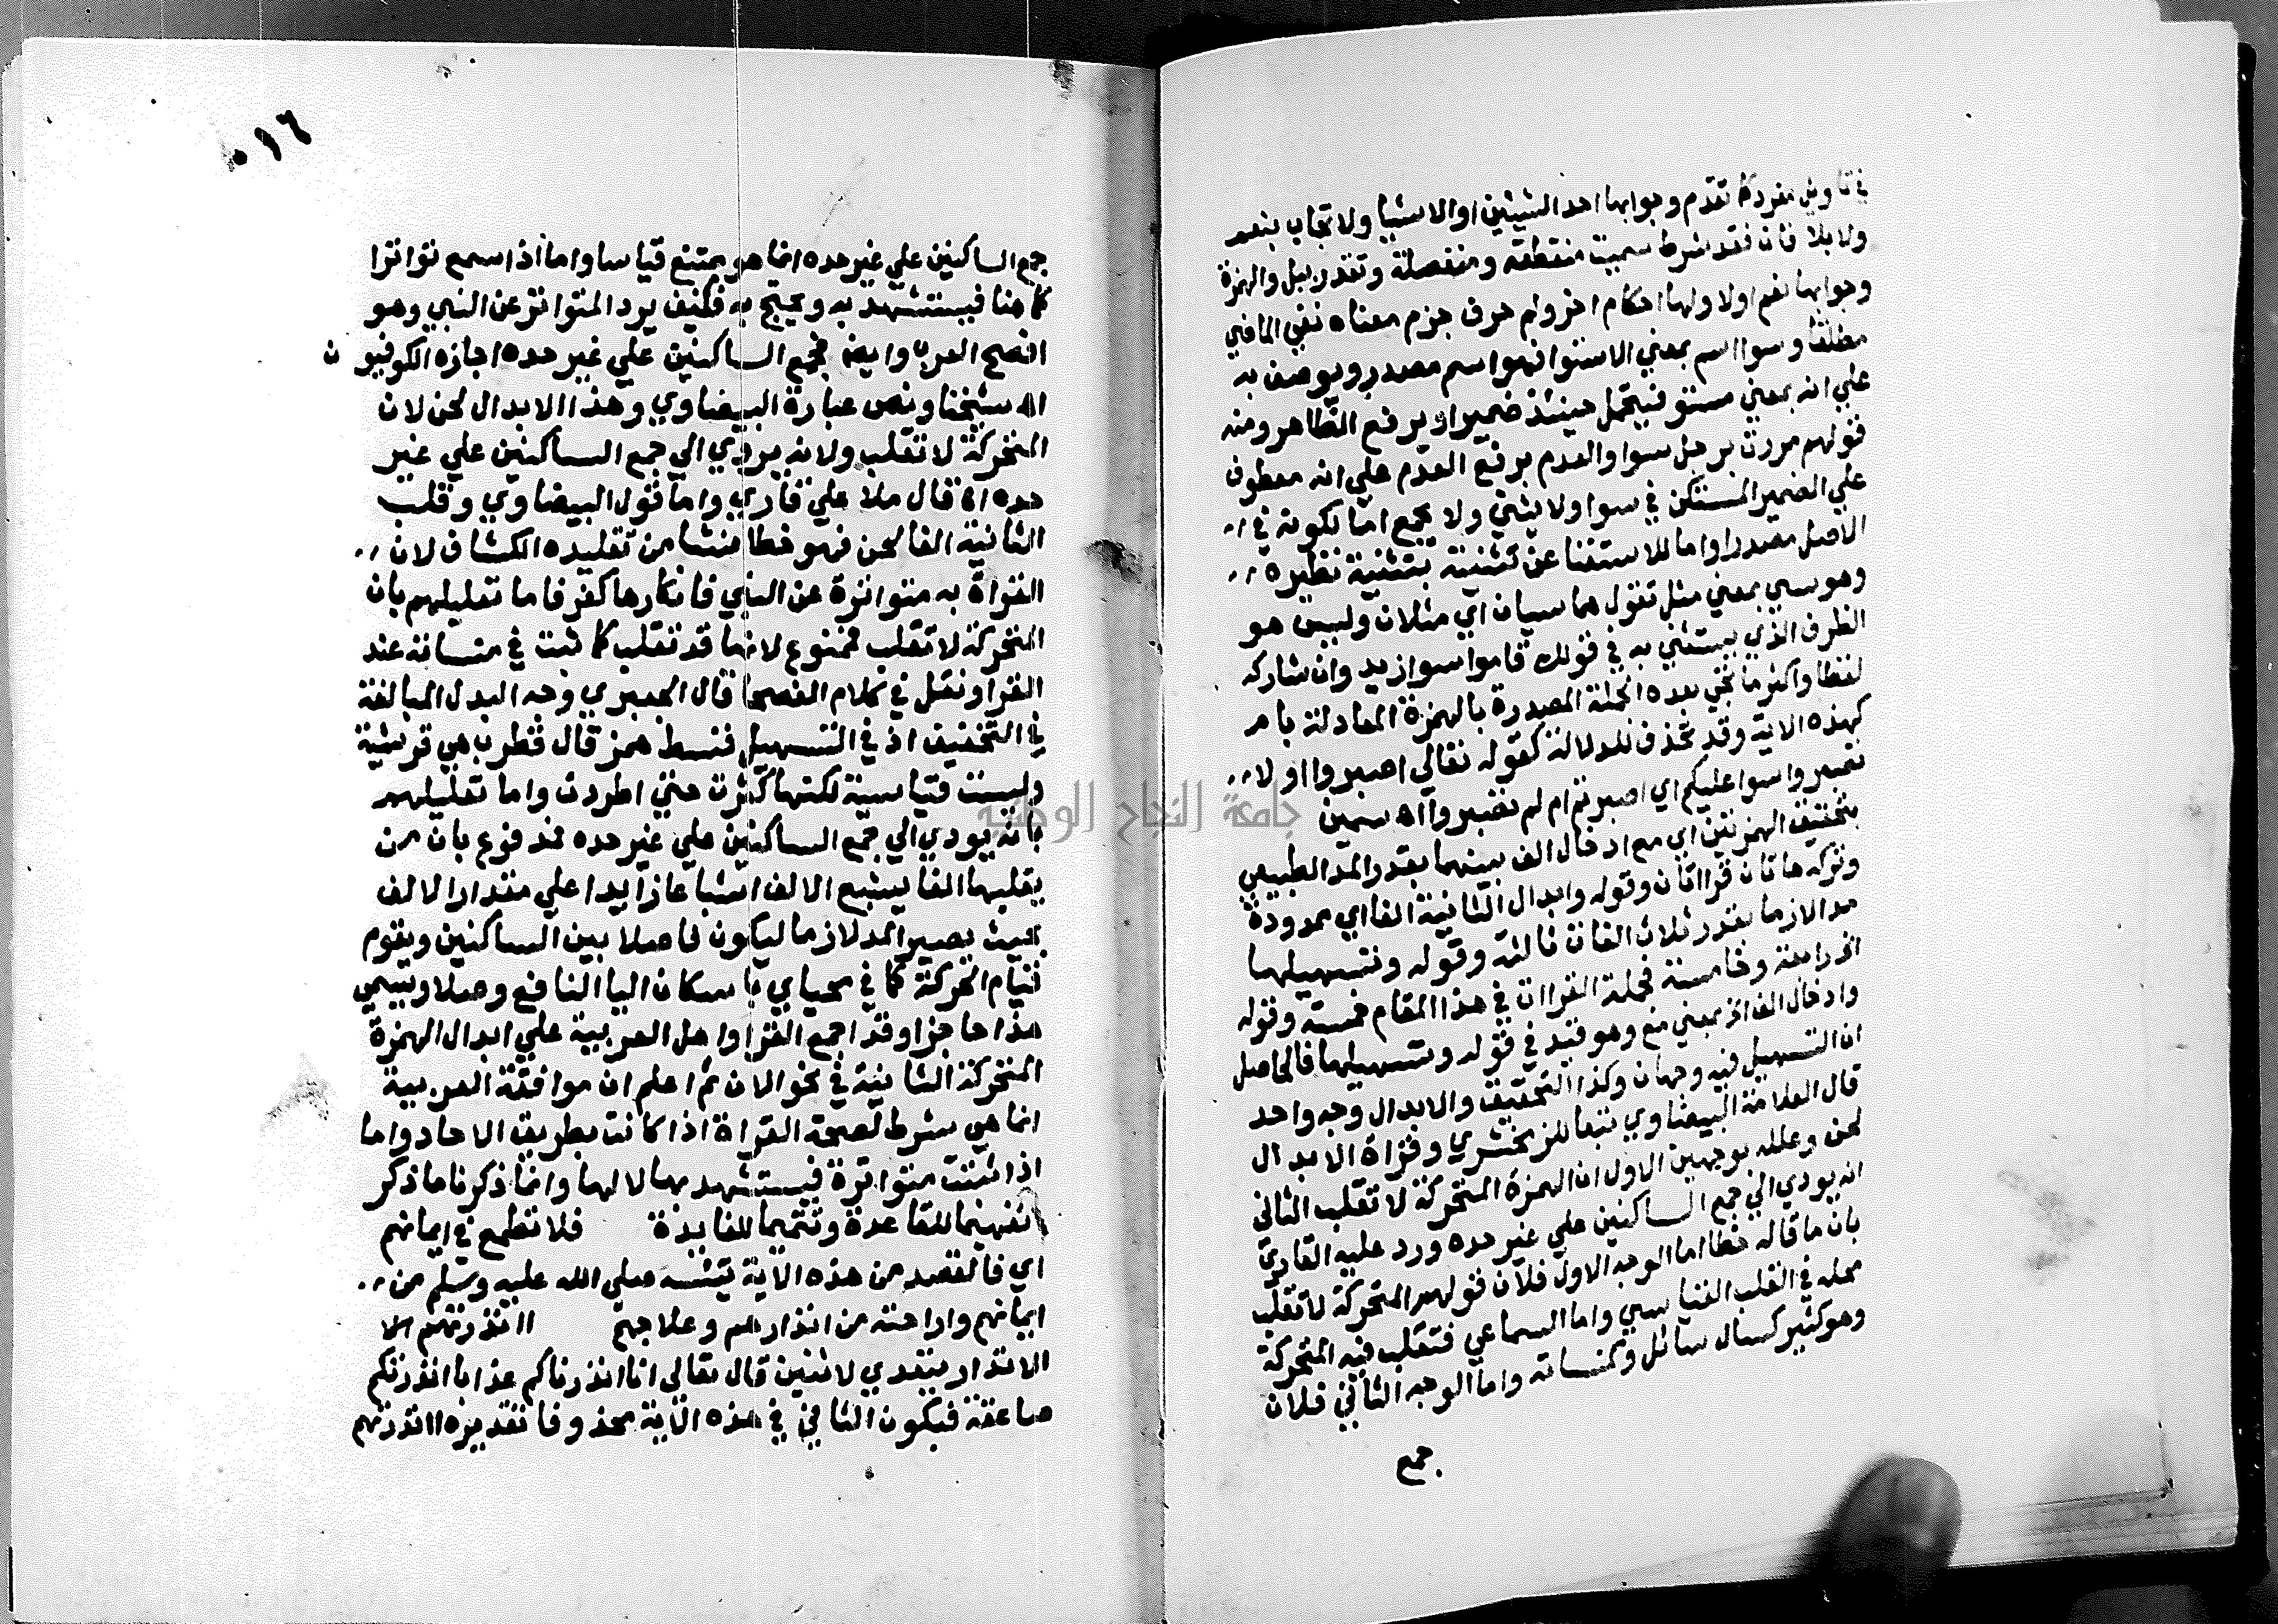 في تاويل مفرد كما تقدم وجوابها احد الشيئين او الاشيا ولا تجاب بنعم
ولا بلا فان فقد شرط سميت منقطعة ومنفصلة وتقدر ببل والهمزة
وجوابها نعم اولا ولها احكام اخر ولم حرف جزم معناه نفي الماضي
مطلقا وسوا اسم بمعني الاستوا فهو اسم مصدر ويوصف به
علي انه بمعني مستو فيتحمل حينئذ ضميرا او يرفع الظاهر ومنه
قولهم مررت برجل سوا والعدم برفع العدم علي انه معطوف
علي الضمير المستكن في سوا ولا يثني ولا يجمع اما لكونه في
الاصل مصدرا واما للاستغنا عن تثنيته بتثنية نظيره
وهو سي بمعني مثل تقول هما سيان اي مثلان وليس هو
الظرف الذي يستثني به في قولك قاموا سوا زيد وان شاركه
لفظا واكثر ما تجي بعده الجملة المصدرة بالهمزة المعادلة بام
كهذه الاية وقد تحذف للدلالة كقوله تعالي اصبروا او لا
تصبروا سوا عليكم اي اصبرتم ام لم تصبروا اه سمين
بتحقيق الهمزتين اي مع ادخال الف بينهما بقدر المد الطبيعي
وتركه هاتان قراتان وقوله وابدال الثانية الفا اي ممدودة
مدا لازما بقدر ثلاث الفات ثالثة وقوله وتسهيلها
الخ رابعة وخامسة فجملة القراات في هذا المقام خمسة وقوله
وادخال الف الخ بمعني مع وهو قيد في قوله وتسهيلها فالحاصل
ان التسهيل فيه وجهان وكذا التحقيق والابدال وجه واحد
قال العلامة البيضاوي تبعا للزمخشري وقراة الابدال
لحن وعلله بوجهين الاول ان الهمزة المتحركة لا تقلب الثاني
انه يودي الي جمع الساكنين علي غير حده ورد عليه القاري
بان ما قاله خطا اما الوجه الاول فلان قولهم المتحركة لا تقلب
محله في القلب القياسي واما السماعي فتقلب فيه المتحركة
وهو كثير كسال سائل وكمنساته واما الوجه الثاني فلان
جمع
٠١٦
جمع الساكنين علي غير حده انما هو يمتنع قياسا واما اذا سمع تواترا
كما هنا فيستشهد به ويحتج به فكيف يرد المتواتر عن النبي وهو
افصح العرب وايضا فجمع الساكنين علي غير حده اجازه الكوفيون
اه شيخنا ونص عبارة البيضاوي وهذا الابدال لحن لان
المتحركة لا تقلب ولانه يودي الي جمع الساكنين علي غير
حده اه قال ملا علي قاري واما قول البيضاوي وقلب
الثانية الفا لحن فهو خطا منشا من تقليده الكشاف لان
القراة به متواترة عن النبي فانكارها كفر فاما تعليلهم بان
المتحركة لا تقلب فممنوع لانها قد تقلب كما ثبت في منساته عند
القرا ونقل في كلام الفصحا قال الجعبري وجه البدل المبالغة
في التخفيف اذ في التسهيل قسط همز قال قطرب هي قرشية
وليست قياسية لكنها كثرت حتي اطردت واما تعليلهم
بانه يودي الي جمع الساكنين علي غير حده مدفوع بان من
يقلبها الفا يشبع الالف اشباعا زايدا علي مقدار الالف
بحيث يصير المد لازما ليكون فاصلا بين الساكنين ويقوم
قيام الحركة كما في محياي باسكان اليا النافع وصلا ويسمي
هذا حاجزا وقد اجمع القرا واهل العربية علي ابدال الهمزة
المتحركة الثانية في نحو الان ثم اعلم ان موافقة العربية
انما هي شرط لصحة القراة اذا كانت بطريق الاحاد واما
اذا ثبتت متواترة فيستشهد بها لا لها وانما ذكرنا ما ذكر
تفهيما للقاعدة وتتميما للفايدة فلا تطمع في ايمانهم
اي فالقصد من هذه الاية تيئسه صلي الله عليه وسلم من
ايمانهم واراحته من انذارهم وعلاجهم اانذرتهم الا
الانذار يتعدي لاثنين قال تعالى انا انذرناكم عذابا انذرتكم
صاعقة فيكون الثاني في هذه الاية محذوفا تقديره اانذرتهم
جامعة النجاح الوطنية